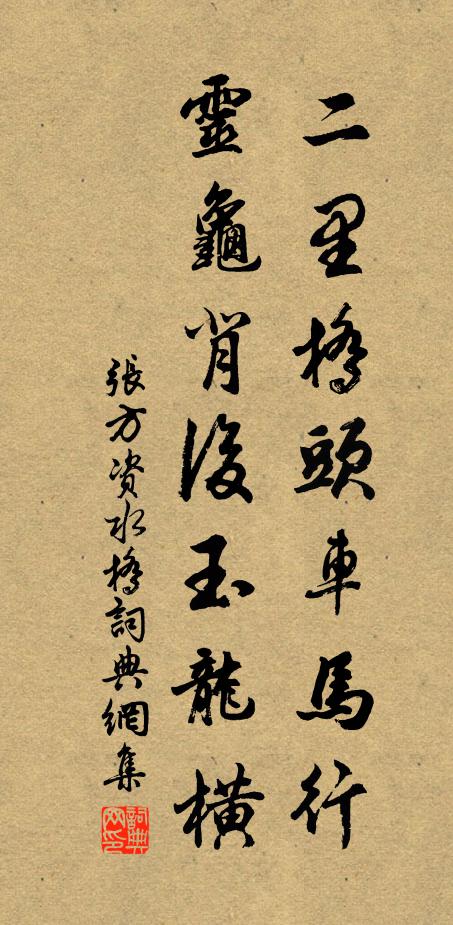 二里橋頭車馬行
靈龜背後玉龍橫
張方資水橋詞典網集
詞典網印